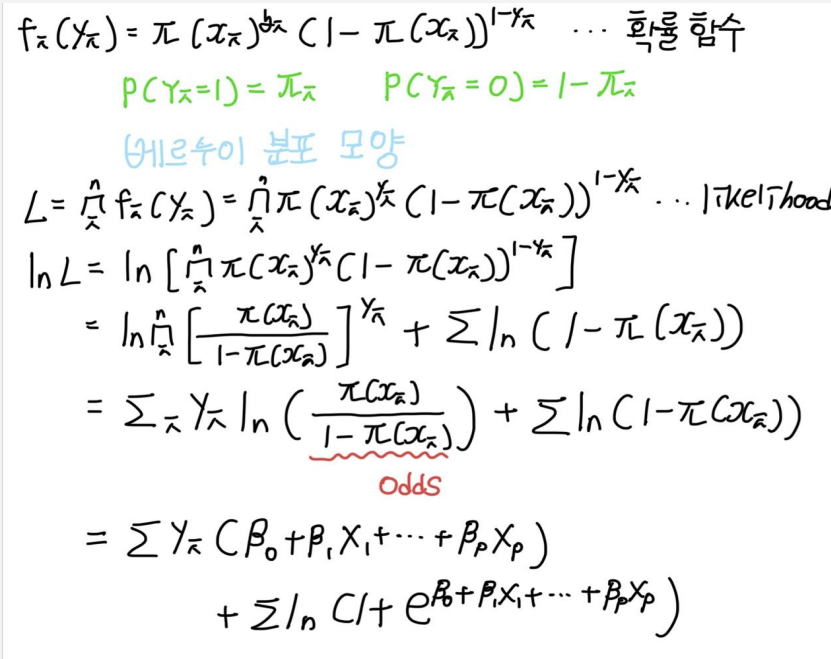 fᵢ(yᵢ) = π(xᵢ)^yᵢ (1 − π(xᵢ))^1−yᵢ ⋯ 확률 함수
P(Yᵢ=1) = πᵢ P(Yᵢ=0) = 1 − πᵢ
베르누이 분포 모양
L = ∏ᵢⁿ fᵢ(yᵢ) = ∏ᵢⁿ π(xᵢ)^yᵢ (1 − π(xᵢ))^1−yᵢ ⋯ likelihood
ln L = ln [∏ᵢⁿ π(xᵢ)^yᵢ (1 − π(xᵢ))^1−yᵢ]
= ln ∏ᵢⁿ [π(xᵢ) / 1 − π(xᵢ)]^yᵢ + Σ ln (1 − π(xᵢ))
= Σᵢ yᵢ ln (π(xᵢ) / 1 − π(xᵢ)) + Σ ln (1 − π(xᵢ))
odds
= Σ yᵢ (β₀ + β₁X₁ + ⋯ + βₚXₚ)
+ Σ ln (1 + e^β₀ + β₁X₁ + ⋯ + βₚXₚ)